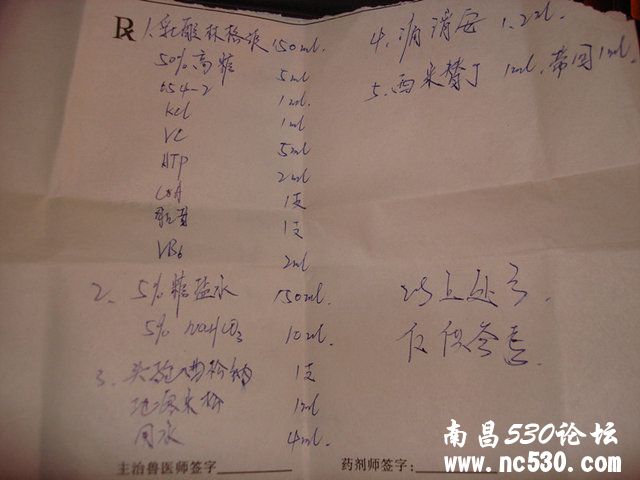 R 1. 乳酸林格液 150ml
50%高糖 5ml
654-2 1ml
Kcl 1ml
VC 5ml
ATP 2ml
CoA 1支
1支
VB6 2ml
2. 5%糖盐水 150ml
5% NaHCO3 10ml
3. 头孢曲松钠 1支
地塞米松 1ml
用水 4ml
4. 病消安 1.2ml
5. 西米替丁 1ml
以上处方
仅供参考
主治兽医师签字
药剂师签字:
南昌530论坛
www.nc530.com